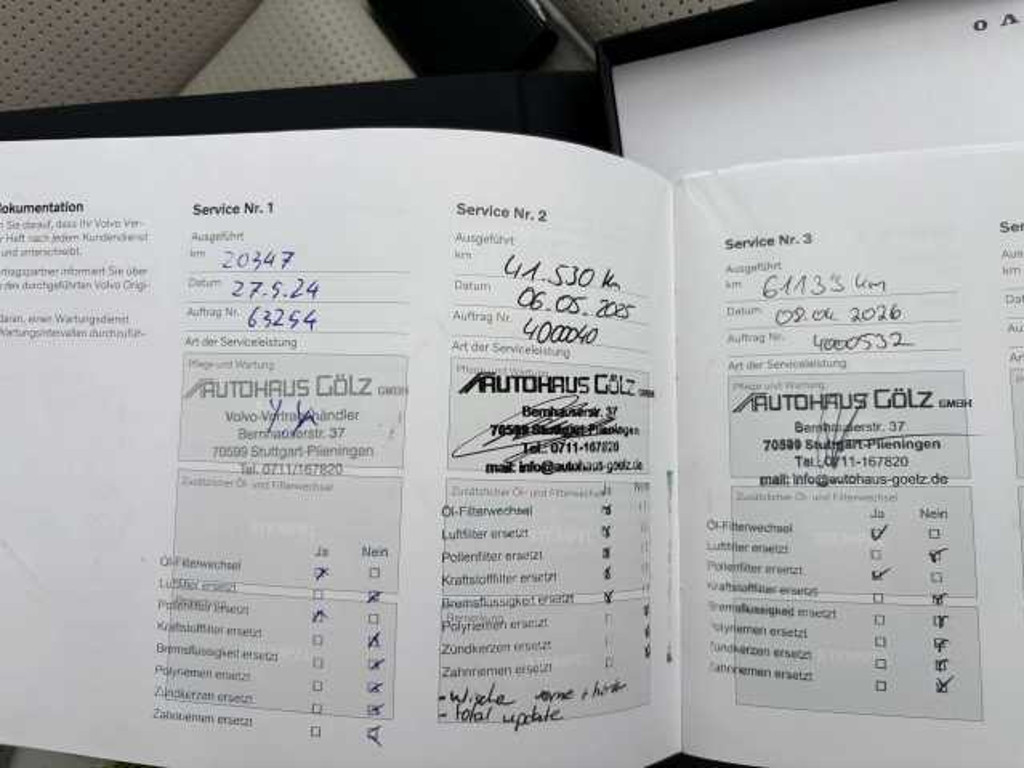 o A
okumentation
n Sie darauf, dass Ihr Volvo Ver-
r Heft nach jedem Kundendienst
und unterschreibt.
rtragspartner informiert Sie über
daran, einen Wartungsdienst
Wartungsintervallen durchzufüh-
Service Nr. 1
Ausgeführt
km 20347
Datum 27.5.24
Auftrag Nr. 63254
Art der Serviceleistung
Pflege und Wartung
AUTOHAUS GÖLZ GMBH
Volvo-Vertragshändler
Bernhauserstr. 37
70599 Stuttgart-Plieningen
Tel. 0711/167820
Zusätzlicher Öl- und Filterwechsel
Ja Nein
Öl-Filterwechsel
Luftfilter ersetzt
Pollenfilter ersetzt
Kraftstofffilter ersetzt
Bremsflüssigkeit ersetzt
Polyriemen ersetzt
Zündkerzen ersetzt
Zahnriemen ersetzt
Service Nr. 2
Ausgeführt
km 41.530 km
Datum 06.05.2025
Auftrag Nr. 400040
Art der Serviceleistung
AUTOHAUS GÖLZ GMBH
Bernhauserstr. 37
70599 Stuttgart-Plieningen
Tel.: 0711-167820
mail: info@autohaus-goelz.de
Zusätzlicher Öl- und Filterwechsel
Ja Nein
Öl-Filterwechsel
Luftfilter ersetzt
Pollenfilter ersetzt
Kraftstofffilter ersetzt
Bremsflüssigkeit ersetzt
Polyriemen ersetzt
Zündkerzen ersetzt
Zahnriemen ersetzt
- Wischer vorne + hinten
- total update
Service Nr. 3
Ausgeführt
km 61135 km
Datum 2026
Auftrag Nr. 4000532
Art der Serviceleistung
Pflege und Wartung
AUTOHAUS GÖLZ GMBH
Bernhauserstr. 37
70599 Stuttgart-Plieningen
Tel.: 0711-167820
mail: info@autohaus-goelz.de
Zusätzlicher Öl- und Filterwechsel
Ja Nein
Öl-Filterwechsel
Luftfilter ersetzt
Pollenfilter ersetzt
Kraftstofffilter ersetzt
Bremsflüssigkeit ersetzt
Polyriemen ersetzt
Zündkerzen ersetzt
Zahnriemen ersetzt
Ser
km